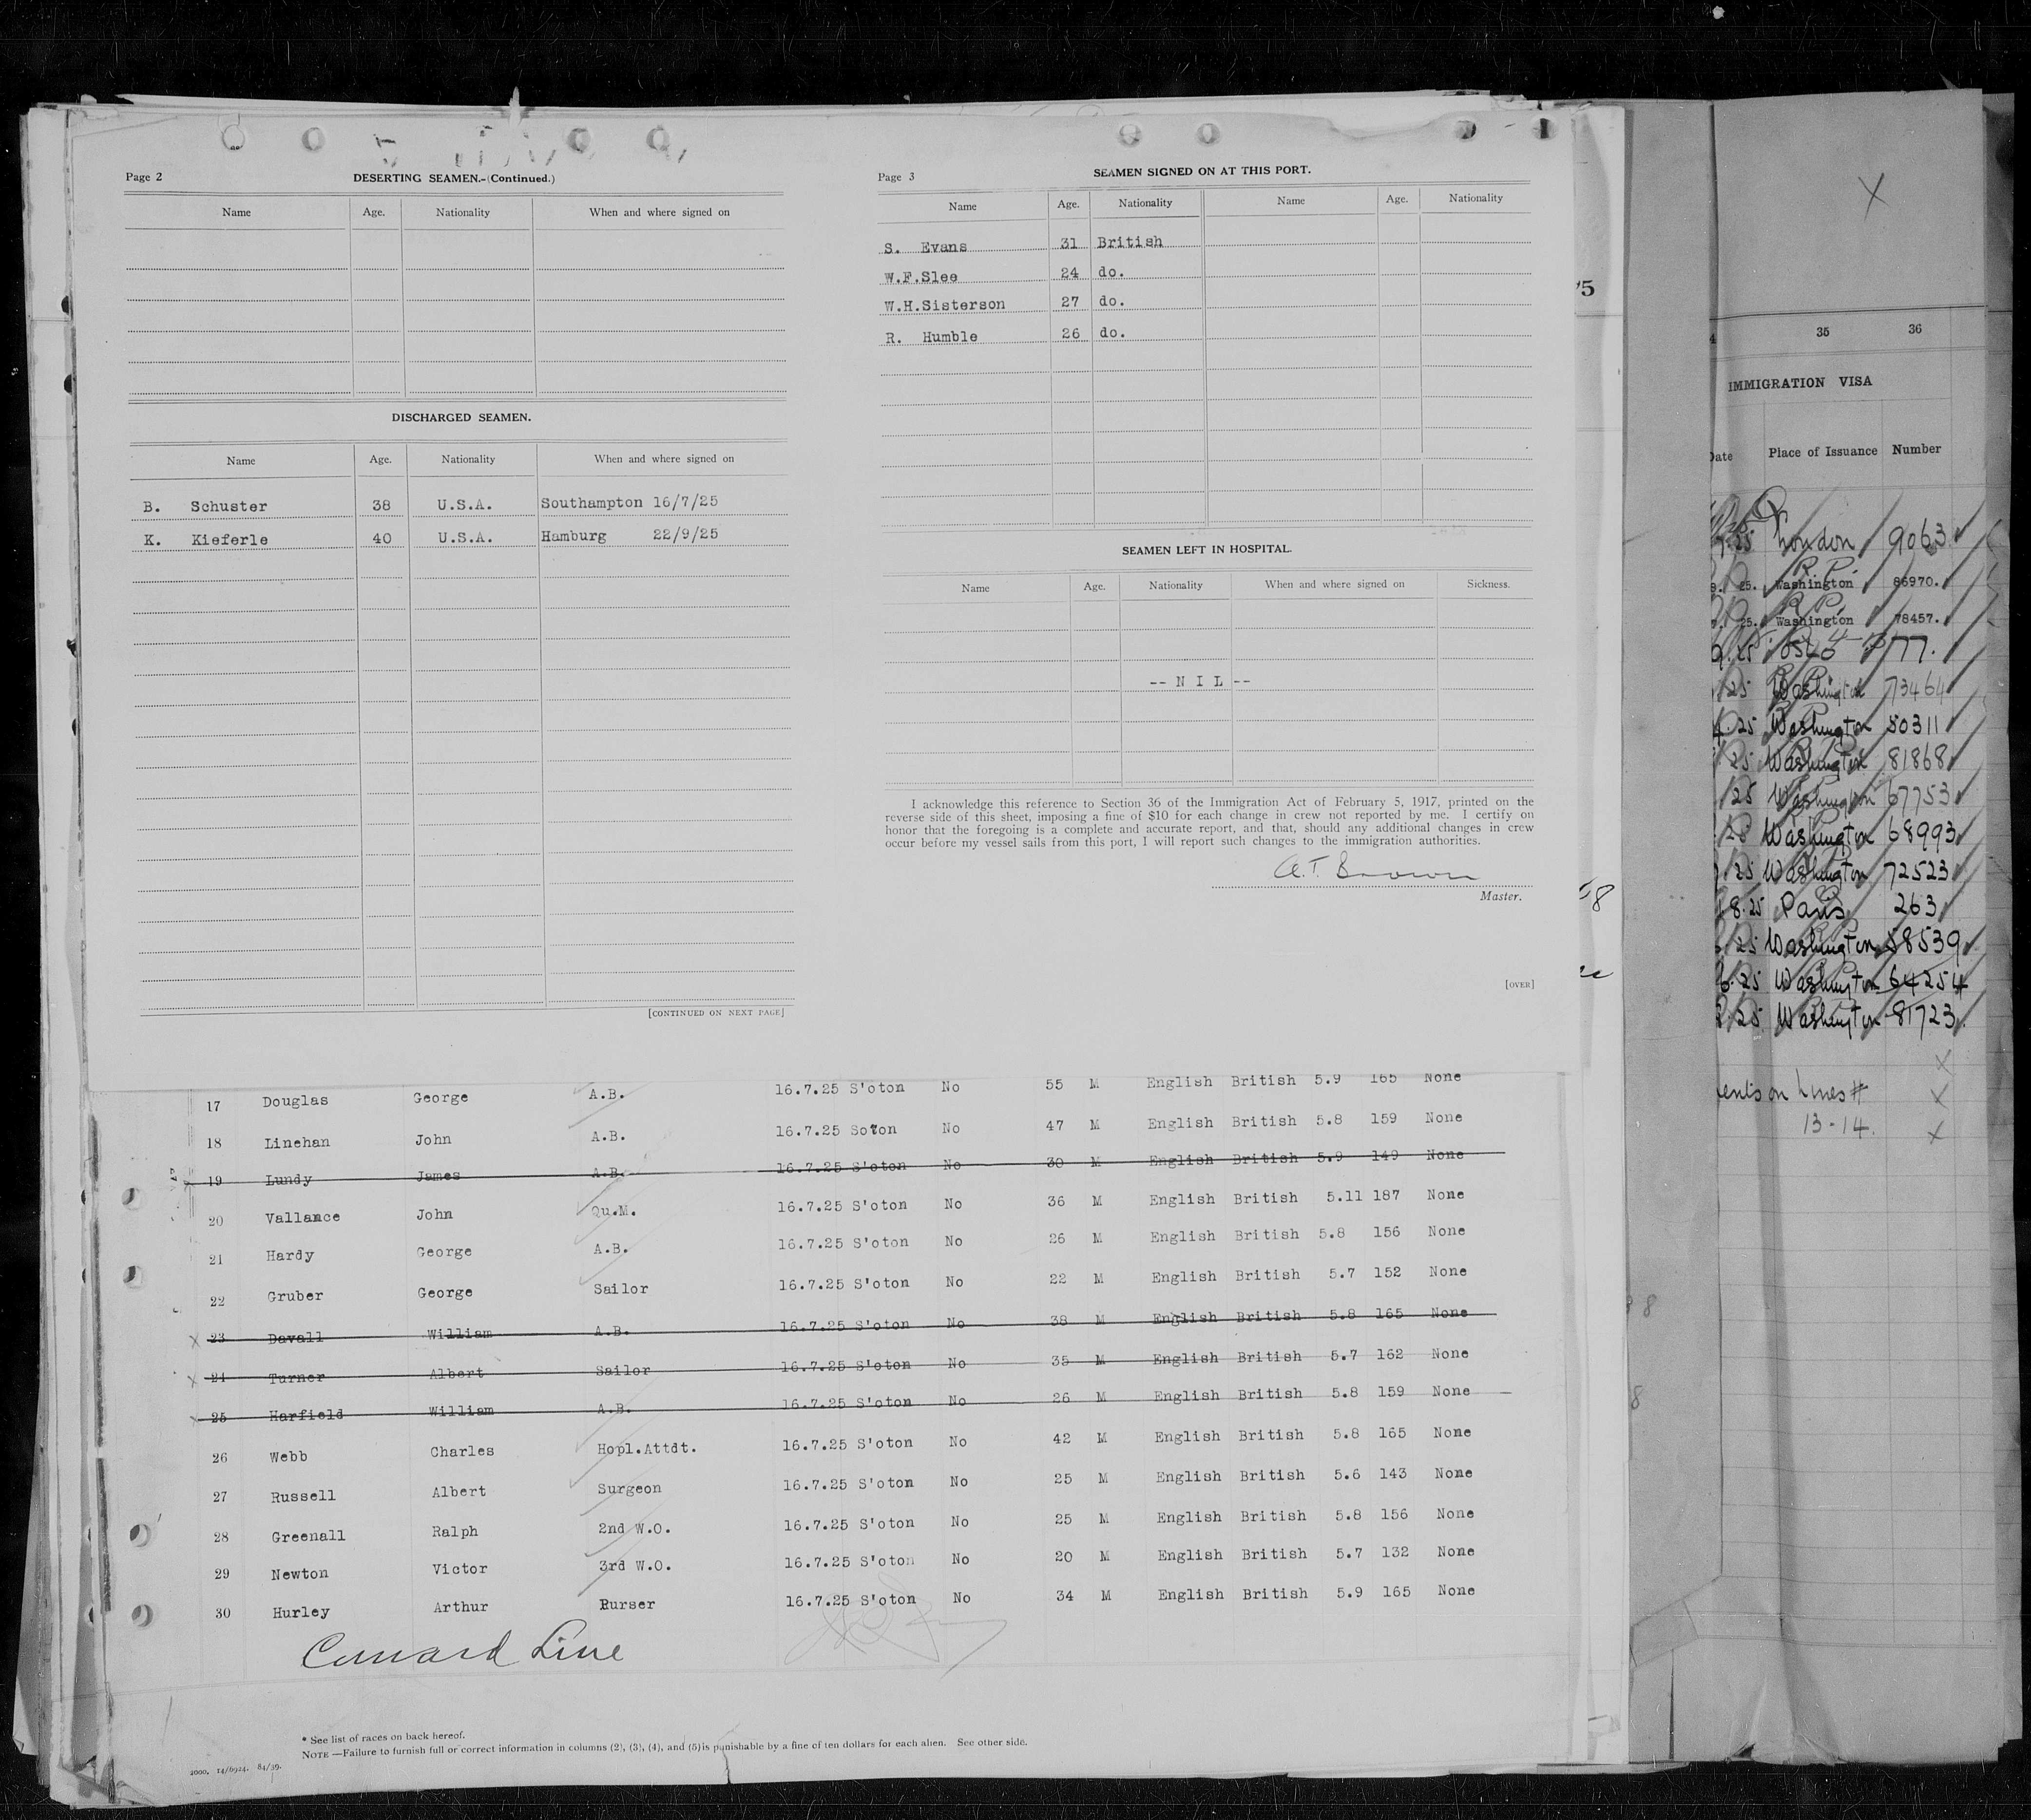 Page 2
DESERTING SEAMEN.-(Continued.)
Name Age. Nationality When and where signed on
DISCHARGED SEAMEN.
Name Age. Nationality When and where signed on
B. Schuster 38 U.S.A. Southampton 16/7/25
K. Kieferle 40 U.S.A. Hamburg 22/9/25
[CONTINUED ON NEXT PAGE]
Page 3
SEAMEN SIGNED ON AT THIS PORT.
Name Age. Nationality Name Age. Nationality
S. Evans 31 British
W.F.Slee 24 do.
W.H.Sisterson 27 do.
R. Humble 26 do.
SEAMEN LEFT IN HOSPITAL.
Name Age. Nationality When and where signed on Sickness.
-- N I L --
I acknowledge this reference to Section 36 of the Immigration Act of February 5, 1917, printed on the
reverse side of this sheet, imposing a fine of $10 for each change in crew not reported by me. I certify on
honor that the foregoing is a complete and accurate report, and that, should any additional changes in crew
occur before my vessel sails from this port, I will report such changes to the immigration authorities.
A.T. Brown
Master.
[OVER]
17 Douglas George A.B. 16.7.25 S'oton No 55 M English British 5.9 165 None
18 Linehan John A.B. 16.7.25 Soton No 47 M English British 5.8 159 None
19 Lundy James A.B. 16.7.25 S'oton No 30 M English British 5.9 149 None
20 Vallance John Qu.M. 16.7.25 S'oton No 36 M English British 5.11 187 None
21 Hardy George A.B. 16.7.25 S'oton No 26 M English British 5.8 156 None
22 Gruber George Sailor 16.7.25 S'oton No 22 M English British 5.7 152 None
X 23 Davall William A.B. 16.7.25 S'oton No 38 M English British 5.8 165 None
X 24 Turner Albert Sailor 16.7.25 S'oton No 35 M English British 5.7 162 None
X 25 Harfield William A.B. 16.7.25 S'oton No 26 M English British 5.8 159 None
26 Webb Charles Hopl.Attdt. 16.7.25 S'oton No 42 M English British 5.8 165 None
27 Russell Albert Surgeon 16.7.25 S'oton No 25 M English British 5.6 143 None
28 Greenall Ralph 2nd W.O. 16.7.25 S'oton No 25 M English British 5.8 156 None
29 Newton Victor 3rd W.O. 16.7.25 S'oton No 20 M English British 5.7 132 None
30 Hurley Arthur Purser 16.7.25 S'oton No 34 M English British 5.9 165 None
Cunard Line
* See list of races on back hereof.
NOTE —Failure to furnish full or correct information in columns (2), (3), (4), and (5) is punishable by a fine of ten dollars for each alien. See other side.
2000. 14/6924. 84/39.
X
35 36
IMMIGRATION VISA
Date Place of Issuance Number
25 London 9063
25. Washington 86970.
25. Washington 78457.
25 Oslo 77.
25 Washington 73464
25 Washington 50311
25 Washington 81868
25 Washington 67753
25 Washington 68993
25 Washington 72523
8.25 Paris 263
25 Washington 58539
25 Washington 64254
25 Washington 81723
X
on Lines # X
13-14. X